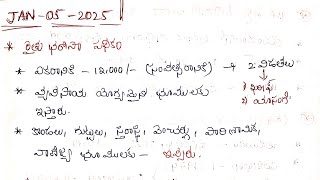 JAN-05-2025
* రైతు భరోసా పథకం
* ఎకరానికి - 12,000/- (సంవత్సరానికి) → 2 విడతలు
1) ఖరీఫ్
2) యాసంగి
* వ్యవసాయ యోగ్యమైన భూములకు ఇస్తారు.
* కొండలు, గుట్టలు, పారిశ్రామిక, వాణిజ్య భూములకు - ఇవ్వరు.